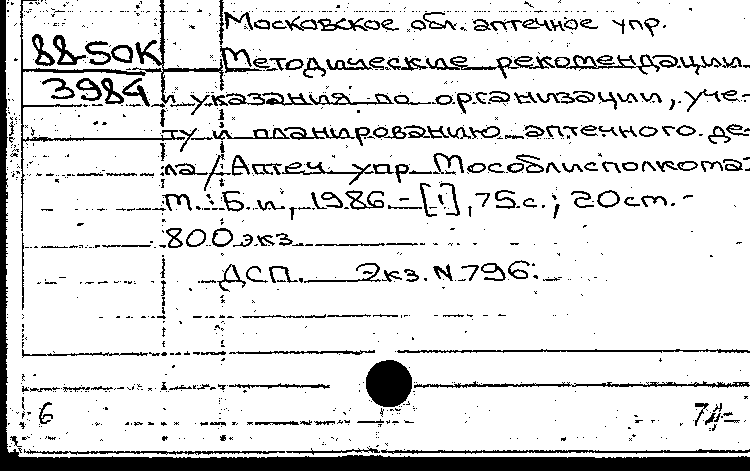 Московское обл. аптечное упр.
88-50К
Методические рекомендации
3984
и указания по организации, уче-
ту и планированию аптечного де-
ла / Аптеч. упр. Мособлисполкома.-
М.: Б.и., 1986.- [1], 75с.; 20см.-
800экз
ДСП. Экз. N 796.
6